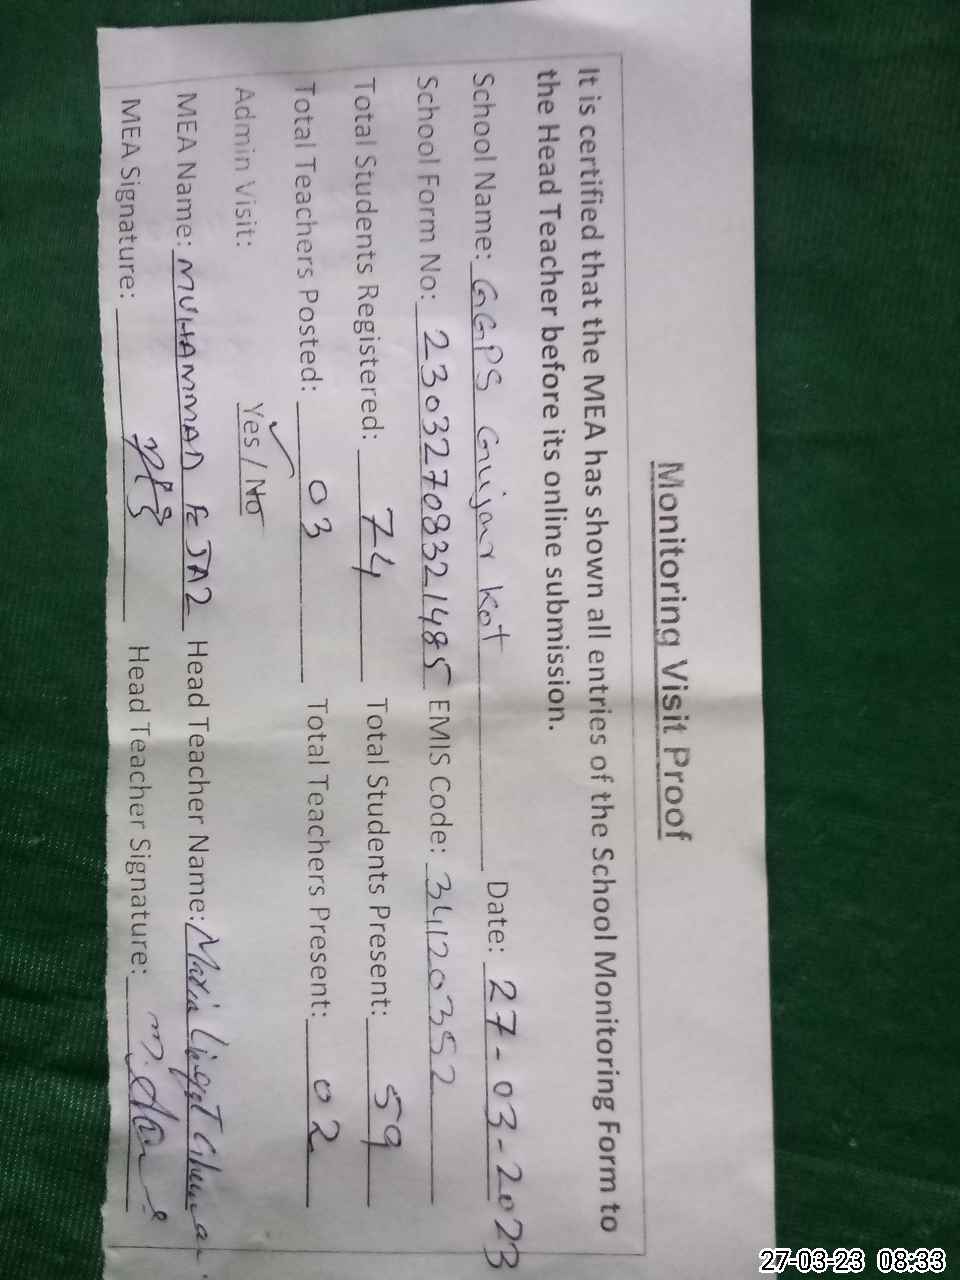 Monitoring Visit Proof
It is certified that the MEA has shown all entries of the School Monitoring Form to
the Head Teacher before its online submission.
School Name: GGPS Gujjar Kot Date: 27-03-2023
School Form No: 23032708321485 EMIS Code: 34120352
Total Students Registered: 74 Total Students Present: 59
Total Teachers Posted: 03 Total Teachers Present: 02
Admin Visit: Yes / No
MEA Name: MUHAMMAD Head Teacher Name: Maria
MEA Signature: Head Teacher Signature:
27-03-23 08:33